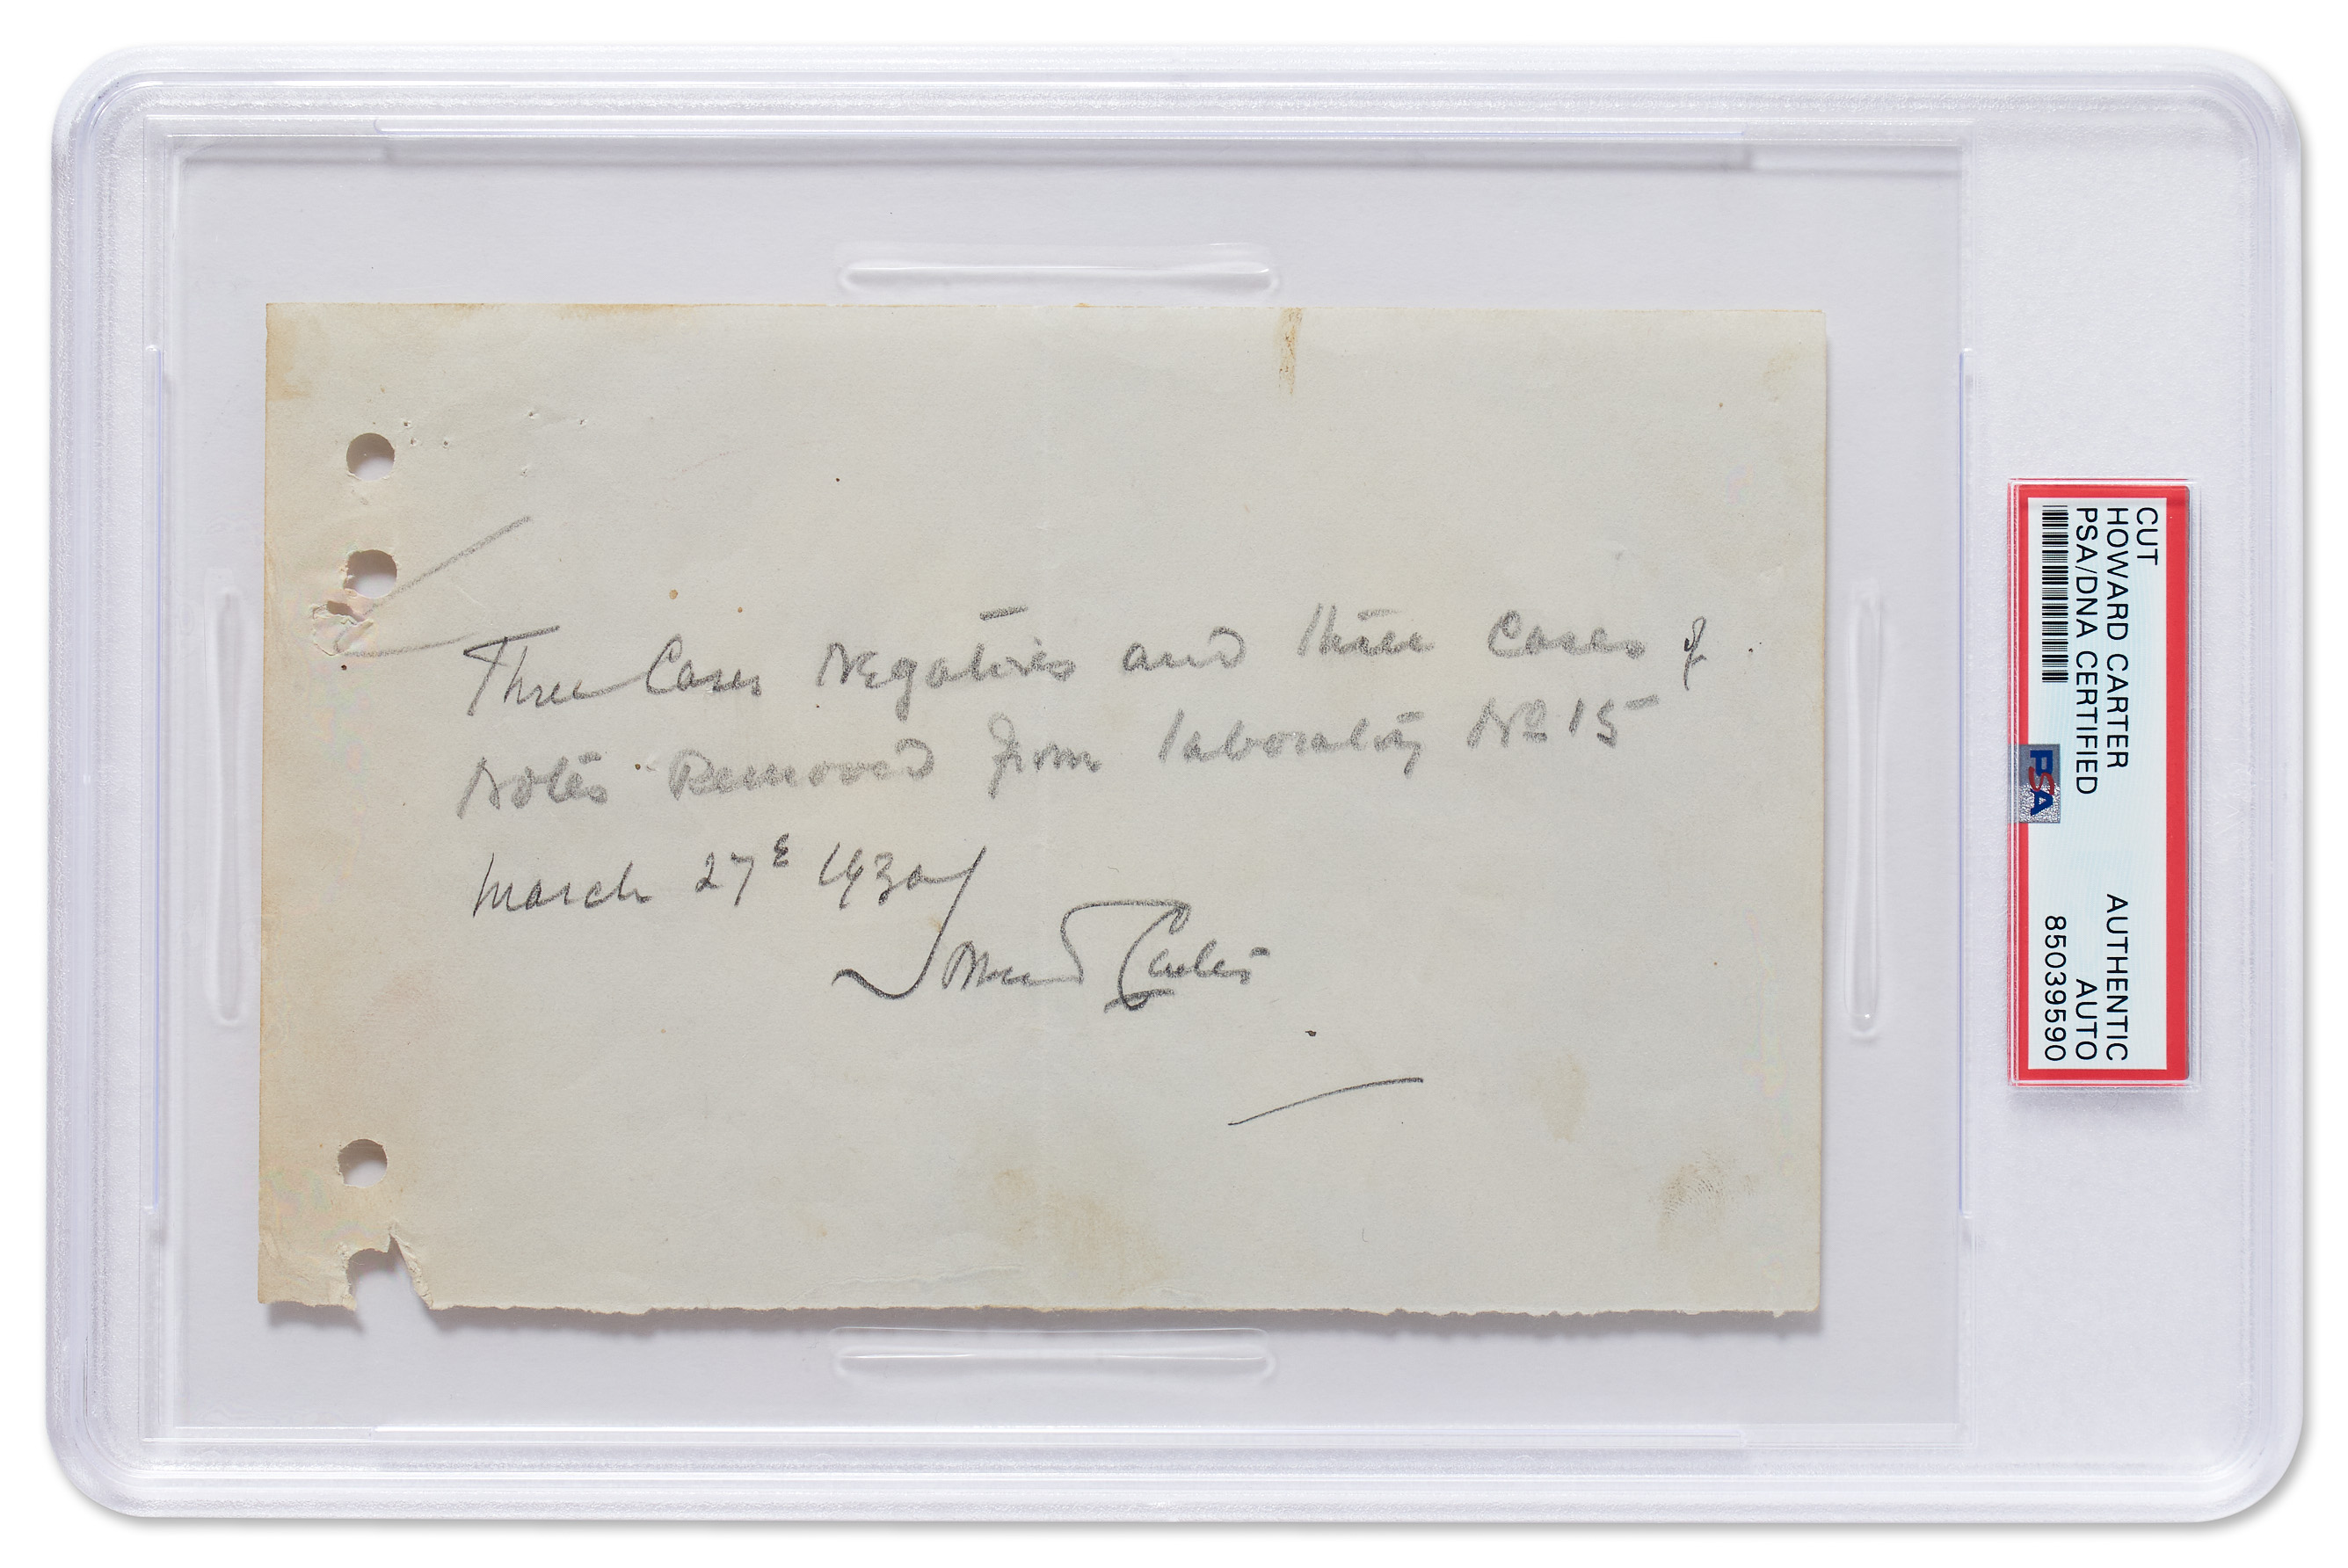 Three Cases Negatives and three Cases of
Notes Removed from laboratory No 15
March 27th 1930
Howard Carter
CUT
HOWARD CARTER AUTHENTIC
PSA/DNA CERTIFIED AUTO
85039590
PSA